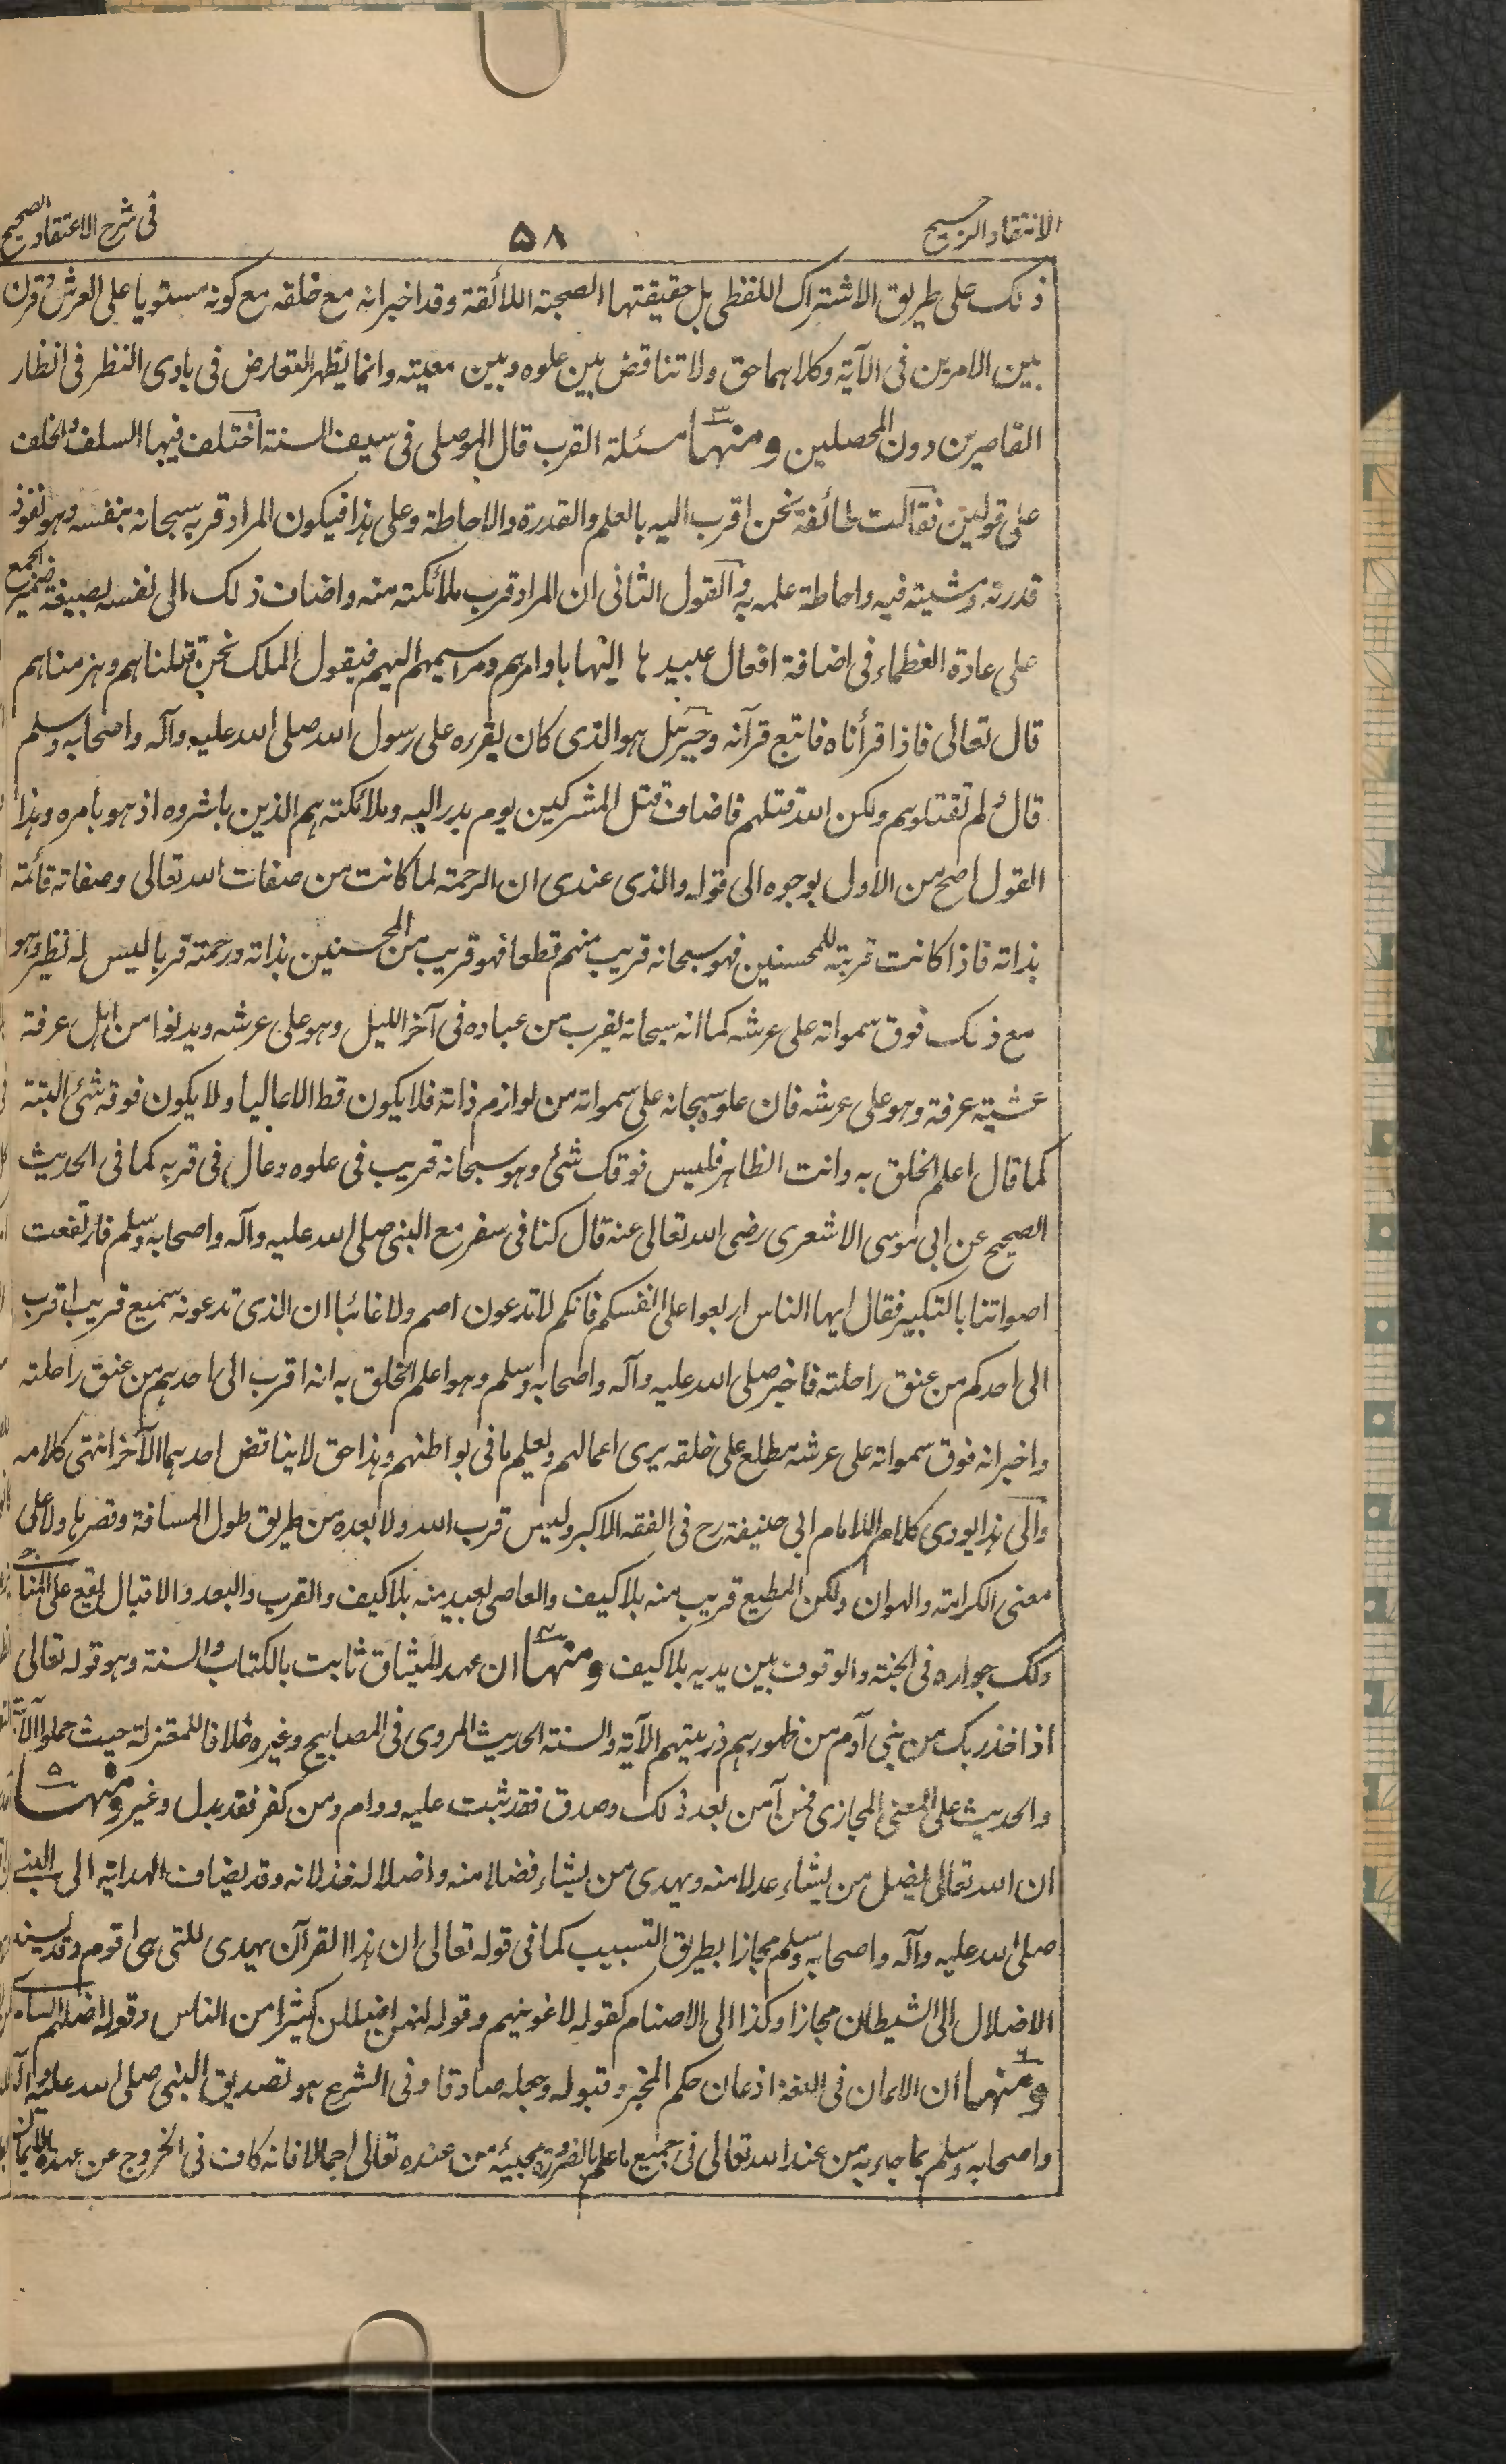 الانتقاد الرجيح
۵۸
فى شرح الاعتقاد الصحيح
ذلك على طريق الاشتراك اللفظى بل حقيقتها الصحبة اللائقة وقد اخبر انه مع خلقه مع كونه مستويا على العرش وقرن
بين الامرين فى الآية وكلاهما حق ولا تناقض بين علوه وبين معيته وانما يظهر التعارض فى بادى النظر فى انظار
القاصرين دون المحصلين ومنها ۳ مسئلة القرب قال الموصلى فى سيف السنة اختلف فيها السلف والخلف
على قولين فقالت طائفة نحن اقرب اليه بالعلم والقدرة والاحاطة وعلى هذا فيكون المراد قربه سبحانه بنفسه وهو نفوذ
قدرته ومشيته فيه واحاطة علمه به والقول الثانى ان المراد قرب ملائكته منه واضاف ذلك الى نفسه بصيغة ضمير الجمع
على عادة العظماء فى اضافة افعال عبيدها اليها باوامرهم ومراسيمهم اليهم فيقول الملك نحن قتلناهم وهزمناهم
قال تعالى فاذا قرأناه فاتبع قرآنه وجبرئيل هو الذى كان يقرره على رسول الله صلى الله عليه وآله واصحابه وسلم
قال لم تقتلوهم ولكن الله قتلهم فاضاف قتل المشركين يوم بدر اليه وملائكته هم الذين باشروه اذ هو بامره وهذا
القول اصح من الاول بوجوه الى قوله والذى عندى ان الرحمة لما كانت من صفات الله تعالى وصفاته قائمة
بذاته فاذا كانت قريبة للمحسنين فهو سبحانه قريب منهم قطعا فهو قريب من المحسنين بذاته ورحمته قربا ليس له نظير وهو
مع ذلك فوق سمواته على عرشه كما انه سبحانه يقرب من عباده فى آخر الليل وهو على عرشه ويدنوا من اهل عرفة
عشية عرفة وهو على عرشه فان علوه سبحانه على سمواته من لوازم ذاته فلا يكون قط الا عاليا ولا يكون فوقه شئ البتة
كما قال اعلم الخلق به وانت الظاهر فليس فوقك شئ وهو سبحانه قريب فى علوه وعال فى قربه كما فى الحديث
الصحيح عن ابى موسى الاشعرى رضى الله تعالى عنه قال كنا فى سفر مع النبى صلى الله عليه وآله واصحابه وسلم فارتفعت
اصواتنا بالتكبير فقال ايها الناس اربعوا على انفسكم فانكم لا تدعون اصم ولا غائبا ان الذى تدعونه سميع قريب اقرب
الى احدكم من عنق راحلته فاخبر صلى الله عليه وآله واصحابه وسلم وهو اعلم الخلق به انه اقرب الى احدهم من عنق راحلته
واخبر انه فوق سمواته على عرشه مطلع على خلقه يرى اعمالهم ويعلم ما فى بواطنهم وهذا حق لا يناقض احدهما الآخر انتهى كلامه
والى هذا يودى كلام الامام ابى حنيفة رح فى الفقه الاكبر وليس قرب الله ولا بعده من طريق طول المسافة وقصرها ولا على
معنى الكرامة والهوان ولكن المطيع قريب منه بلا كيف والعاصى بعيد منه بلا كيف والقرب والبعد والاقبال يقع على المناجى
وكك جواره فى الجنة والوقوف بين يديه بلا كيف ومنها ۴ ان عهد الميثاق ثابت بالكتاب والسنة وهو قوله تعالى
اذ اخذ ربك من بنى آدم من ظهورهم ذريتهم الآية والسنة الحديث المروى فى المصابيح وغيره خلافا للمعتزلة حيث حملوا الآية
والحديث على المعنى المجازى فمن آمن بعد ذلك وصدق فقد ثبت عليه ودوام ومن كفر فقد بدل وغير ومنها ۵
ان الله تعالى يضل من يشاء عدلا منه ويهدى من يشاء فضلا منه واضلاله خذلانه وقد يضاف الهداية الى النبى
صلى الله عليه وآله واصحابه وسلم مجازا بطريق التسبيب كما فى قوله تعالى ان هذا القرآن يهدى للتى هى اقوم وقد يسند
الاضلال الى الشيطان مجازا وكذا الى الاصنام كقوله لاغوينهم وقوله انهن اضللن كثيرا من الناس وقوله اضلهم السامرى
ومنها ۶ ان الايمان فى اللغة اذعان حكم المخبر وقبوله وجعله صادقا وفى الشرع هو تصديق النبى صلى الله عليه وآله
واصحابه وسلم بما جاء به من عند الله تعالى فى جميع ما علم بالضرورة مجيئه من عنده تعالى اجمالا فانه كاف فى الخروج عن عهدة الايمان